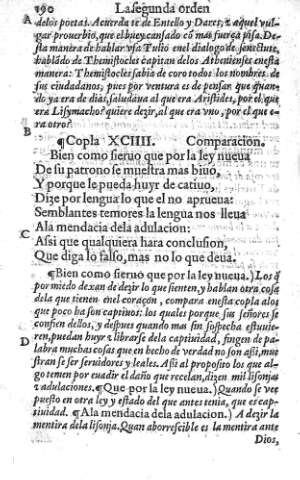 190 La segunda orden
A delos poetas. Acuerda te de Entello y Dares, z aquel vul-
gar prouerbio, que el buey cansado cō mas fuerça pisa. De-
sta manera de hablar vsa Tulio enel dialogo de senectute,
hablādo de Themistocles capitan delos Athenienses enesta
manera: Themistocles sabia de coro todos los nombres de
sus ciudadanos, pues por ventura es de pensar que quan-
do ya era de dias, saludaua al que era Aristides, por el que
era Lisymacho? quiere dezir, al que era vno, por el que e-
ra otro?
B
¶Copla XCIIII. Comparacion.
Bien como sieruo que por la ley nueua
De su patrono se muestra mas biuo,
Y porque le pueda huyr de catiuo,
Dize por lengua lo que el no aprueua:
Semblantes temores la lengua nos lleua
C Ala mendacia dela adulacion:
Assi que qualquiera hara conclusion,
Que diga lo falso, mas no lo que deua.
¶Bien como sierno que por la ley nueua.) Los q̄
por miedo dexan de dezir lo que sienten, y hablan otra cosa
dela que tienen enel coraçon, compara enesta copla alos
que poco ha son captiuos: los quales porque sus señores se
confien dellos, y despues quando mas sin sospecha estuuie-
D ren, puedan huyr z librarse dela captiuidad, fingen de pa-
labra muchas cosas que en hecho de verdad no son assi, mue
stran se ser seruidores y leales. Assi al proposito los que al-
go temen por euadir el daño que recelan, dizen mil lisonjas
z adulaciones. ¶Que por la ley nueua.) Quando se vee
puesto en otra ley y estado del que antes tenia, que es cap-
tiuidad. ¶Ala mendacia dela adulacion.) A dezir la
mentira dela lisonja. Quan aborrescible es la mentira ante
Dios,